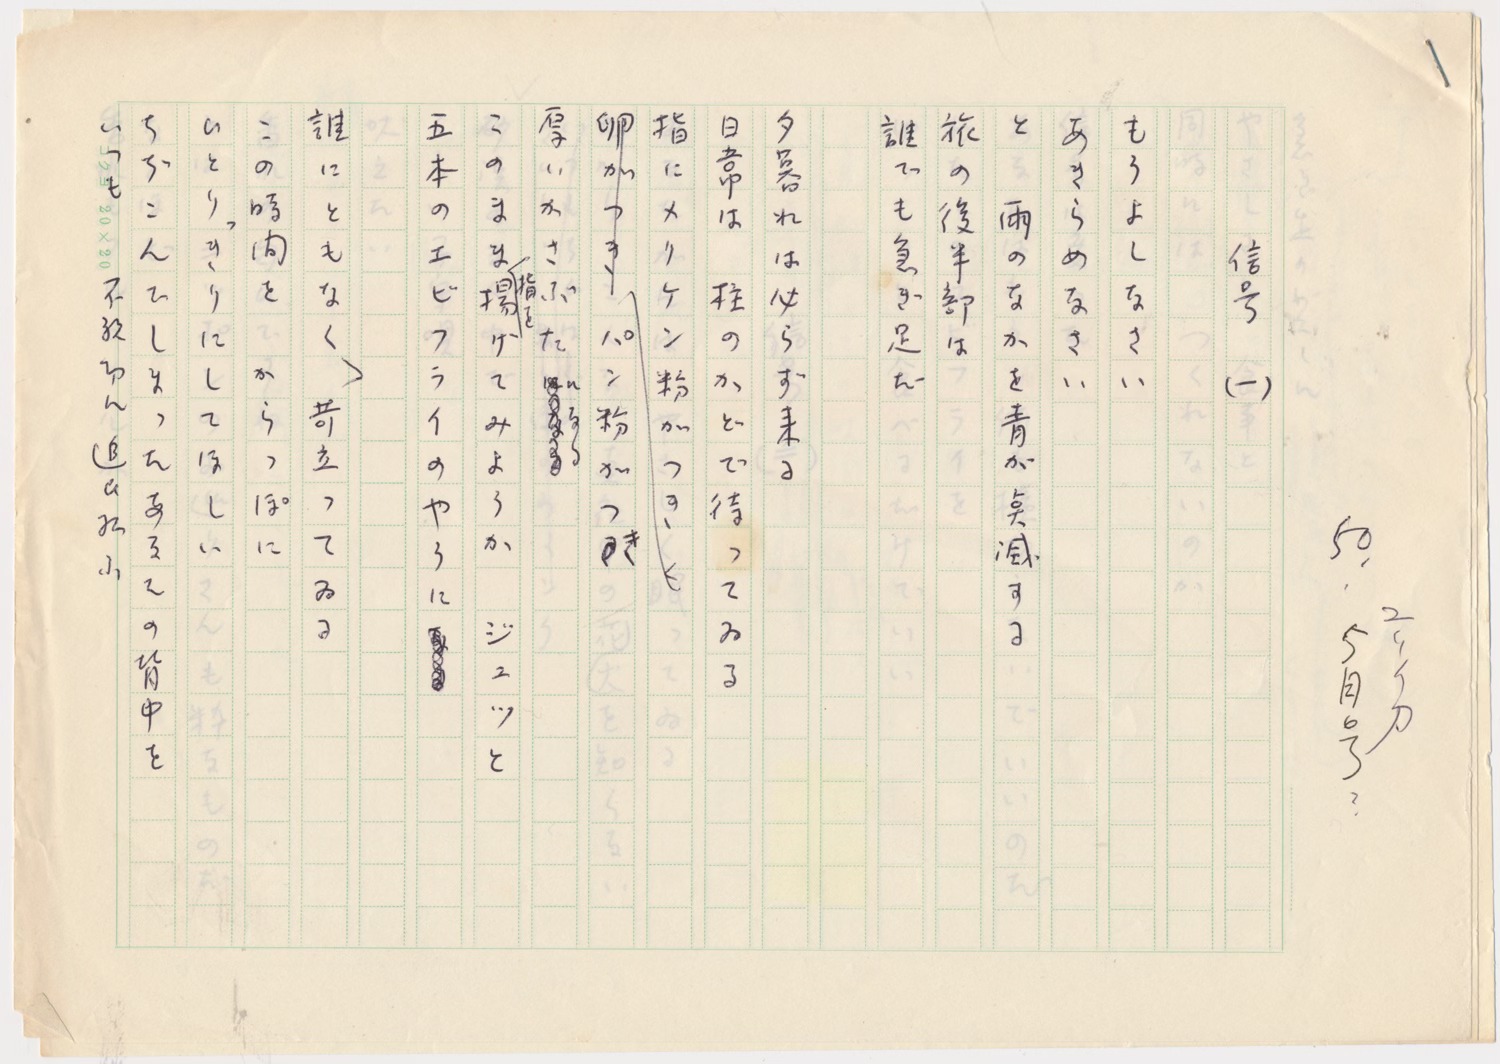 ユリイカ
50. 5月号?
信号 (一)
もうよしなさい
あきらめなさい
と 雨のなかを青が点滅する
旅の後半部は
誰でも急ぎ足だ
夕暮れは必らず来る
日常は 柱のかどで待ってゐる
指にメリケン粉がつき、
卵がつき、パン粉がつき
厚いかさぶたになる
このまま指を揚げてみようか ジュッと
五本のエビフライのやうに
誰にともなく 苛立ってゐる
この時間をからっぽに
いとりっきりにしてほしい
ちぢこんでしまったあなたの背中を
いつも 不親切に追ひ払ふ
20×20